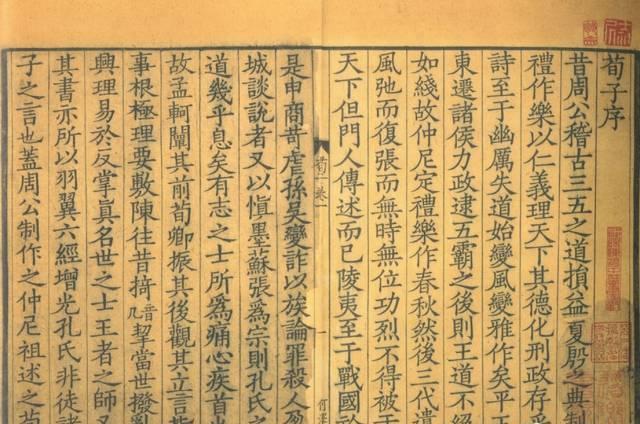 荀子序
昔周公稽古三五之道損益夏殷之典制
禮作樂以仁義理天下其德化刑政存乎
詩至于幽厲失道始變風變雅作矣平王
東遷諸侯力政逮五霸之後則王道不絕
如綫故仲尼定禮樂作春秋然後三代遺
風弛而復張而無時無位功烈不得被于
天下但門人傳述而已陵夷至于戰國於
荀一卷
一
是申商苛虐孫吳變詐以族論罪殺人盈
城談說者又以愼墨蘇張爲宗則孔氏之
道幾乎息矣有志之士所爲痛心疾首也
故孟軻闡其前荀卿振其後觀其立言指
事根極理要敷陳往昔掎几音挈當世撥亂
興理易於反掌眞名世之士王者之師又
其書亦所以羽翼六經增光孔氏非徒諸
子之言也蓋周公制作之仲尼祖述之荀